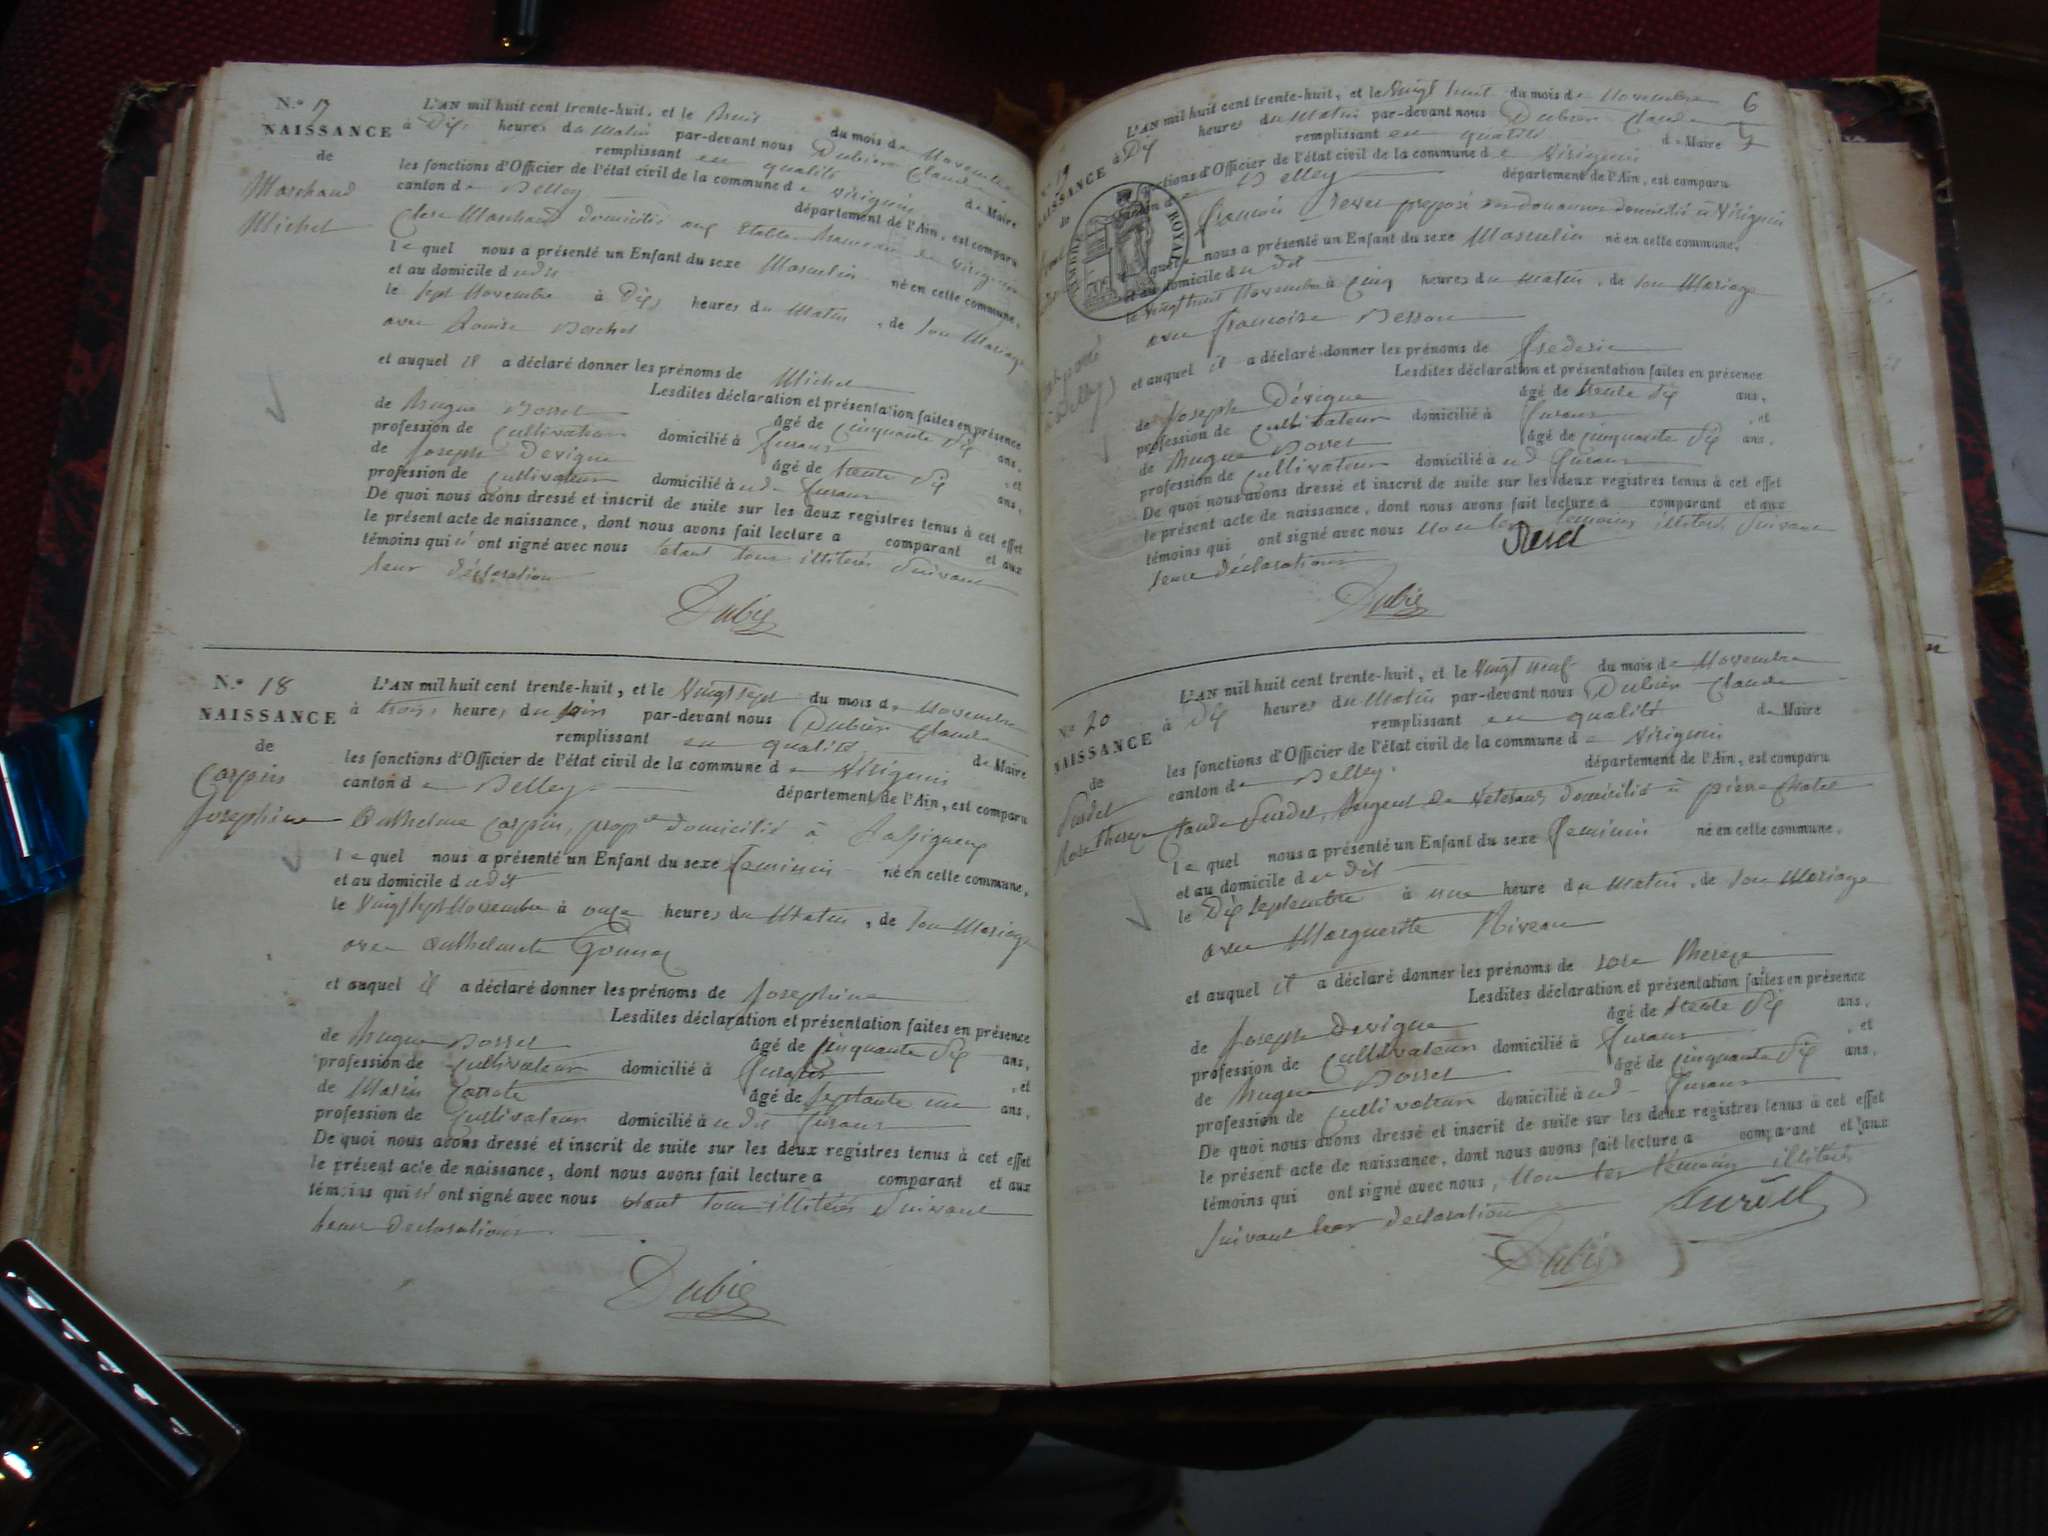 N.º 17
NAISSANCE
de
Marchand
Michel
L'AN mil huit cent trente-huit, et le huit du mois de Novembre
à Dix heures du Matin par-devant nous Dubien Claude
remplissant en qualité de Maire
les fonctions d'Officier de l'état civil de la commune de Virignin
canton de Belley département de l'Ain, est comparu
Marchand domicilié aux hameau de Virignin
lequel nous a présenté un Enfant du sexe Masculin né en cette commune,
et au domicile dudit
le sept Novembre à Dix heures du Matin, de son Mariage
avec Louise Borchet
et auquel il a déclaré donner les prénoms de Michel
Lesdites déclaration et présentation faites en présence
de Hugue Borret âgé de cinquante Dix ans,
profession de cultivateur domicilié à Furans, et
de Joseph Devigue âgé de trente Dix ans,
profession de cultivateur domicilié à ud. Furans
De quoi nous avons dressé et inscrit de suite sur les deux registres tenus à cet effet
le présent acte de naissance, dont nous avons fait lecture a comparant et aux
témoins qui n' ont signé avec nous étant tous illitérés Suivant
leur déclaration
Dubien
N.º 18
NAISSANCE
de
Carpin
Josephine
L'AN mil huit cent trente-huit, et le Vingt sept du mois de Novembre
à trois heures du soir par-devant nous Dubien Claude
remplissant en qualité de Maire
les fonctions d'Officier de l'état civil de la commune de Virignin
canton de Belley département de l'Ain, est comparu
Anthelme Carpin, propre domicilié à
lequel nous a présenté un Enfant du sexe feminin né en cette commune,
et au domicile dudit
le Vingt sept Novembre à onze heures du Matin, de son Mariage
avec Anthelmette
et auquel il a déclaré donner les prénoms de Josephine
Lesdites déclaration et présentation faites en présence
de Hugue Borret âgé de cinquante Dix ans,
profession de cultivateur domicilié à Furans, et
de Marin âgé de septante un ans,
profession de Cultivateur domicilié à udit Furans
De quoi nous avons dressé et inscrit de suite sur les deux registres tenus à cet effet
le présent acte de naissance, dont nous avons fait lecture a comparant et aux
témoins qui n' ont signé avec nous étant tous illitérés Suivant
leur declarations
Dubien
6
19
NAISSANCE
de
TIMBRE ROYAL
L'AN mil huit cent trente-huit, et le Vingt huit du mois de Novembre
à Dix heures du Matin par-devant nous Dubien Claude
remplissant en qualité de Maire
fonctions d'Officier de l'état civil de la commune de Virignin
canton de Belley département de l'Ain, est comparu
francois preposé des douanes domicilié à Virignin
lequel nous a présenté un Enfant du sexe Masculin né en cette commune,
et au domicile dudit
le Vingt huit Novembre à Cinq heures du Matin, de son Mariage
avec francoise Besson
et auquel il a déclaré donner les prénoms de frederic
Lesdites déclaration et présentation faites en présence
de Joseph Dévigue âgé de trente Dix ans,
profession de cultivateur domicilié à Furans, et
de Hugue Borret âgé de cinquante Dix ans,
profession de cultivateur domicilié à ud Furans
De quoi nous avons dressé et inscrit de suite sur les deux registres tenus à cet effet
le présent acte de naissance, dont nous avons fait lecture a comparant et aux
témoins qui ont signé avec nous Non les témoins illitérés Suivant
leurs déclarations
Dubien
N.º 20
NAISSANCE
de
Surdet
Rose Therese
L'AN mil huit cent trente-huit, et le Vingt neuf du mois de Novembre
à Dix heures du Matin par-devant nous Dubien Claude
remplissant en qualité de Maire
les fonctions d'Officier de l'état civil de la commune de Virignin
canton de Belley. département de l'Ain, est comparu
Claude Surdet, Sergent de Veterans domicilié à pierre Chatel
lequel nous a présenté un Enfant du sexe feminin né en cette commune,
et au domicile dudit
le Dix septembre à une heure du Matin, de son Mariage
avec Marguerite Niveau
et auquel il a déclaré donner les prénoms de rose Therese
Lesdites déclaration et présentation faites en présence
de Joseph Devigue âgé de trente Dix ans,
profession de cultivateur domicilié à Furans, et
de Hugue Borret âgé de cinquante Dix ans,
profession de cultivateur domicilié à ud. Furans
De quoi nous avons dressé et inscrit de suite sur les deux registres tenus à cet effet
le présent acte de naissance, dont nous avons fait lecture a comparant et aux
témoins qui ont signé avec nous, Non les témoins illitérés
suivant leur declaration
Surdet
Dubien